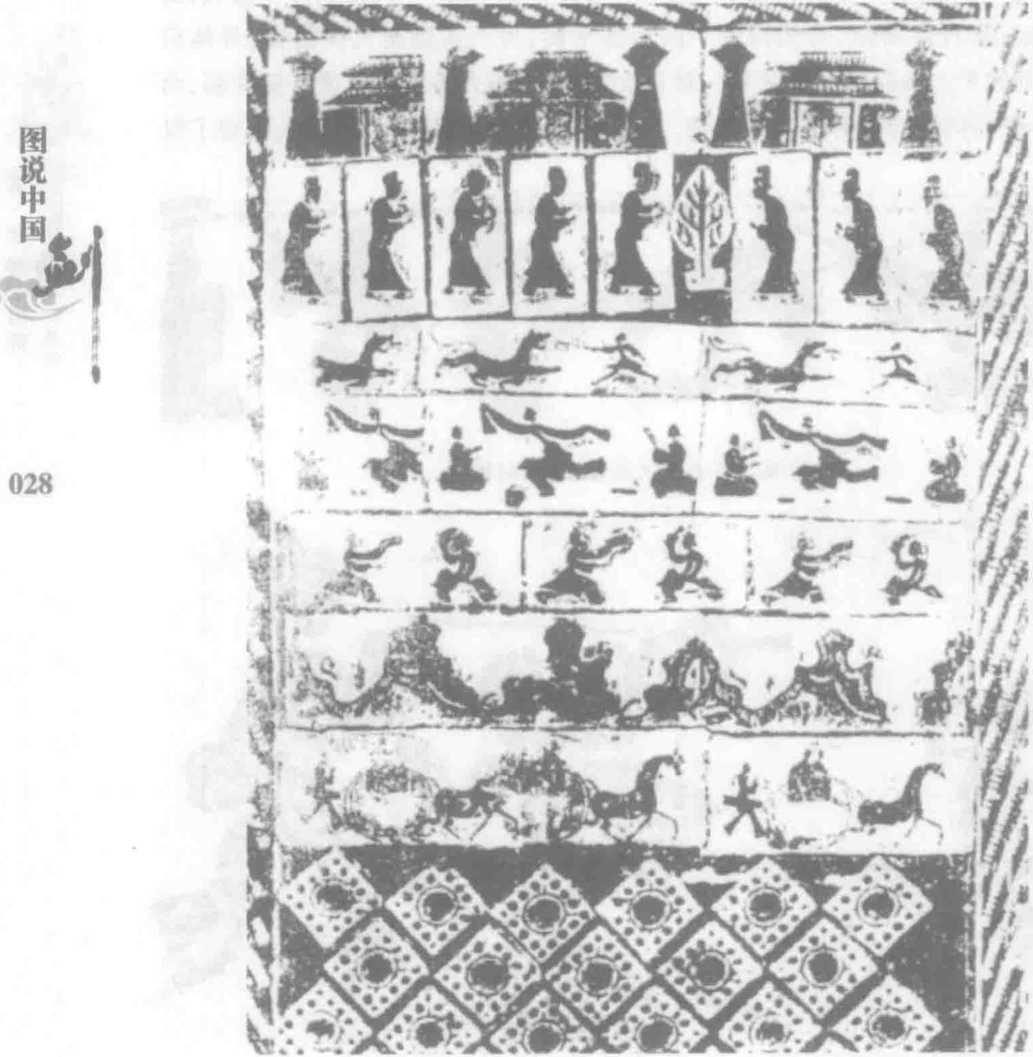 图说中国
028